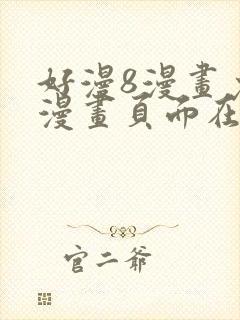 好漫8漫畫
漫畫頁而在
官二爺